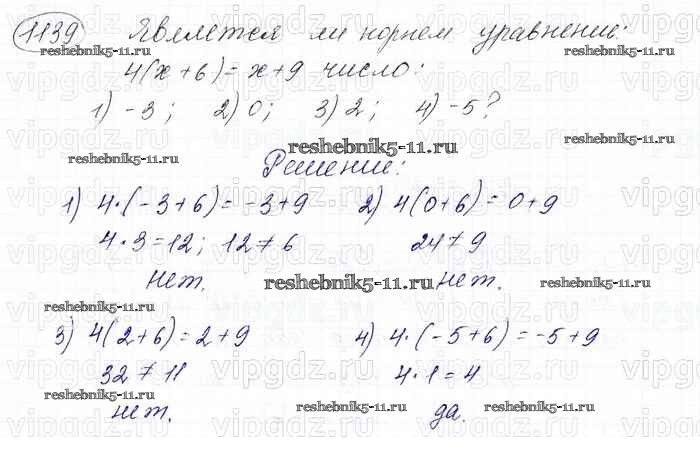 1139 Является ли корнем уравнения:
reshebnik5-11.ru
4(x+6)=x+9 число:
1) -3; 2) 0; 3) 2; 4) -5?
reshebnik5-11.ru
reshebnik5-11.ru
reshebnik5-11.ru
Решение:
1) 4·(-3+6)=-3+9 2) 4(0+6)=0+9
4·3=12; 12≠6 24≠9
нет. reshebnik5-11.ru нет. reshebnik5-11.ru
reshebnik5-11.ru
3) 4(2+6)=2+9 4) 4·(-5+6)=-5+9
32≠11 4·1=4
reshebnik5-11.ru reshebnik5-11.ru reshebnik5-11.ru reshebnik5-11.ru
нет. да.
vipgdz.ru